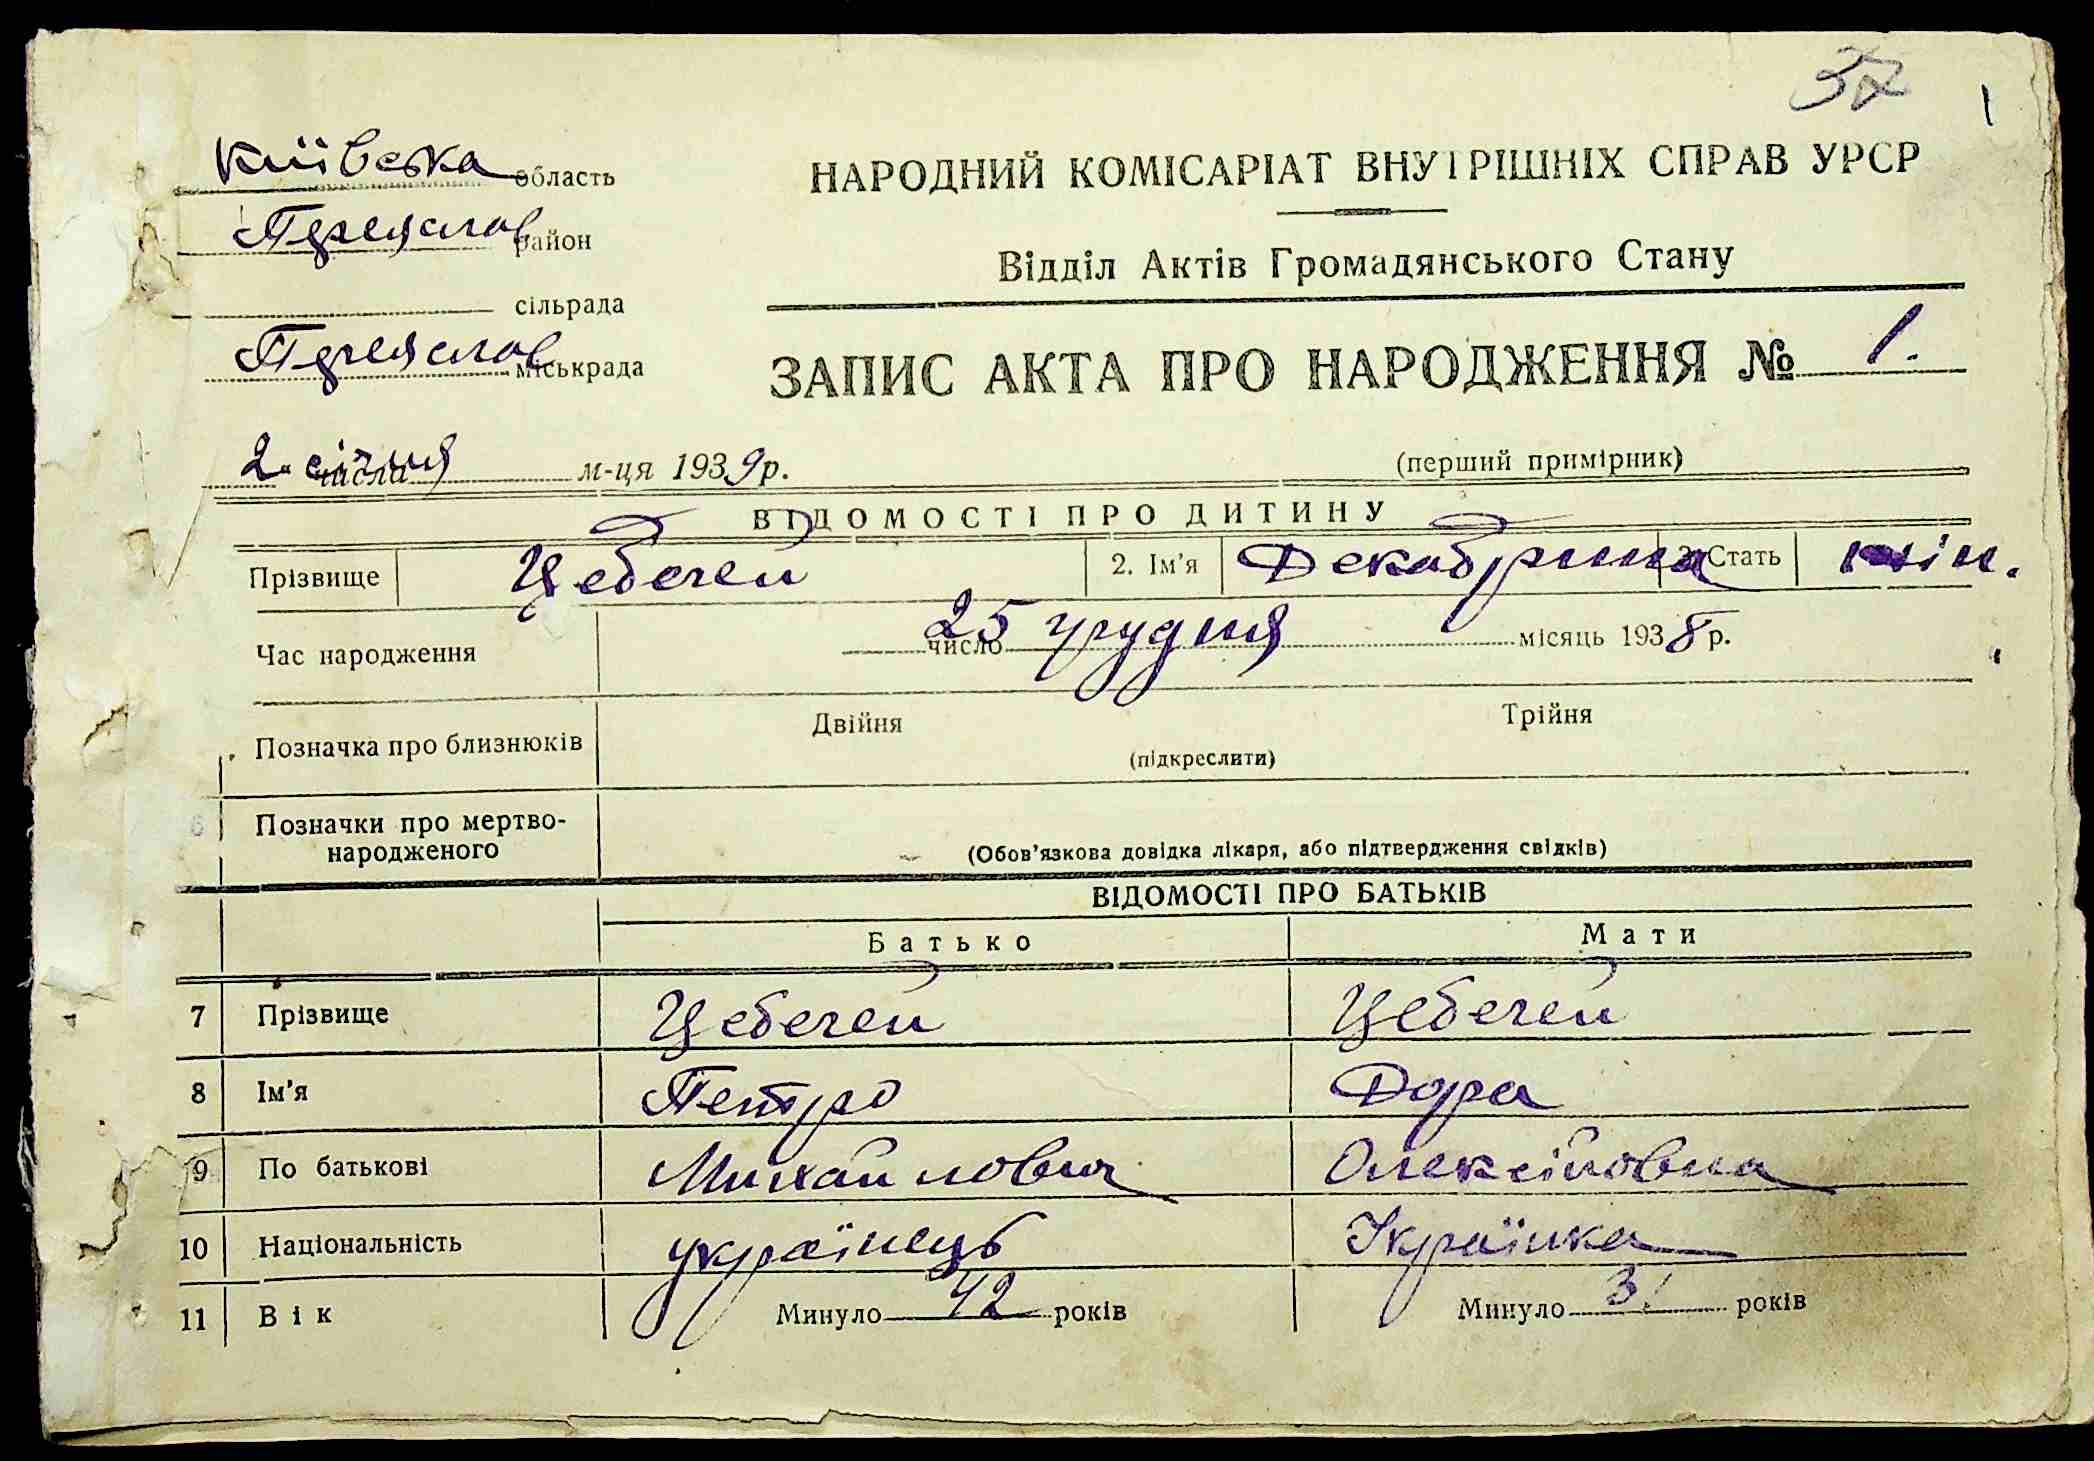 37
1
Київська область
НАРОДНИЙ КОМІСАРІАТ ВНУТРІШНІХ СПРАВ УРСР
Переяслав район
Відділ Актів Громадянського Стану
сільрада
Переяслав міськрада
ЗАПИС АКТА ПРО НАРОДЖЕННЯ № 1.
2 січня числа м-ця 1939 р.
(перший примірник)
ВІДОМОСТІ ПРО ДИТИНУ
Прізвище Цебечей 2. Ім'я Декабрина 3. Стать жін.
Час народження 25 грудня число місяць 1938 р.
Позначка про близнюків Двійня Трійня
(підкреслити)
6 Позначки про мертво-
народженого
(Обов'язкова довідка лікаря, або підтвердження свідків)
ВІДОМОСТІ ПРО БАТЬКІВ
Батько Мати
7 Прізвище Цебечей Цебечей
8 Ім'я Петро Дора
9 По батькові Михайлович Олексіївна
10 Національність українець Українка
11 Вік Минуло 42 років Минуло 31 років